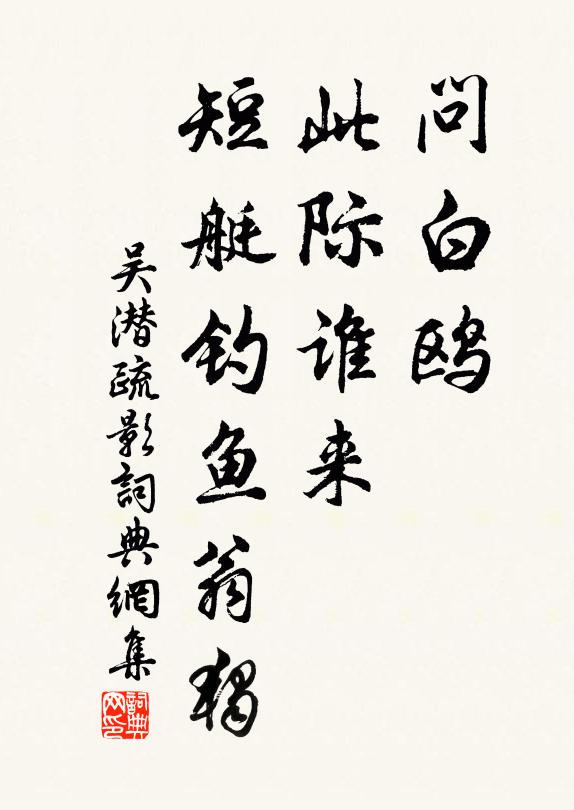 问白鸥
此际谁来
短艇钓鱼翁独
吴潜疏影詞典網集
詞典网印